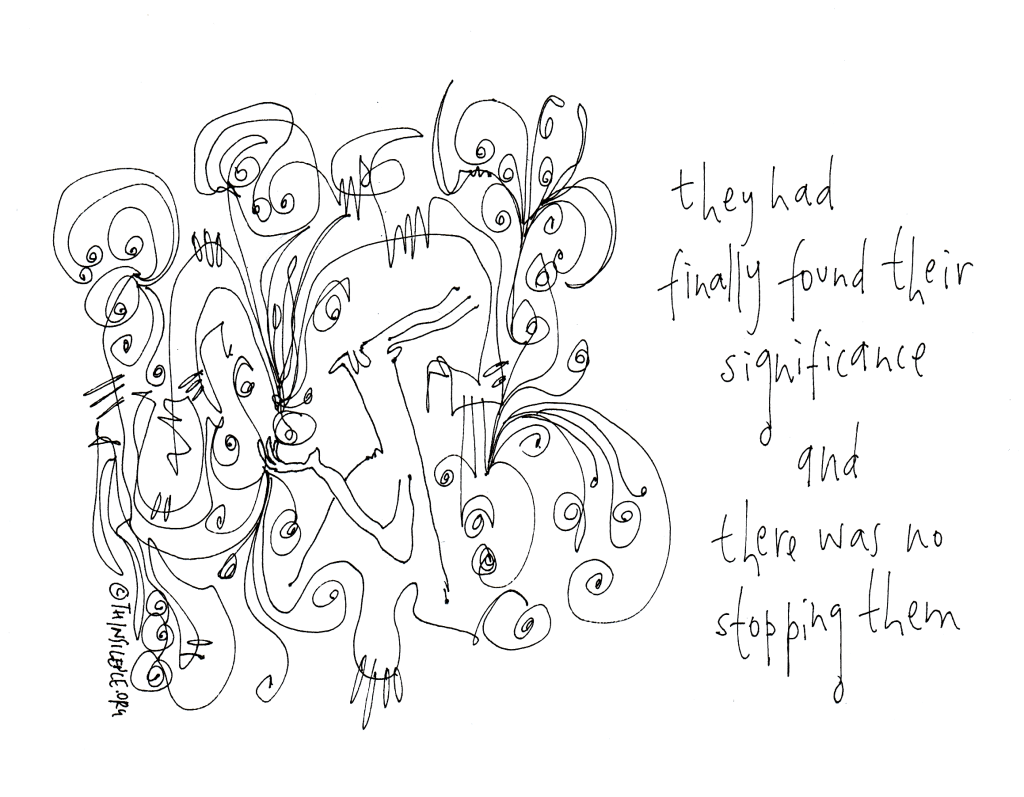 they had
finally found their
significance
and
there was no
stopping them
©THINSILENCE.ORG